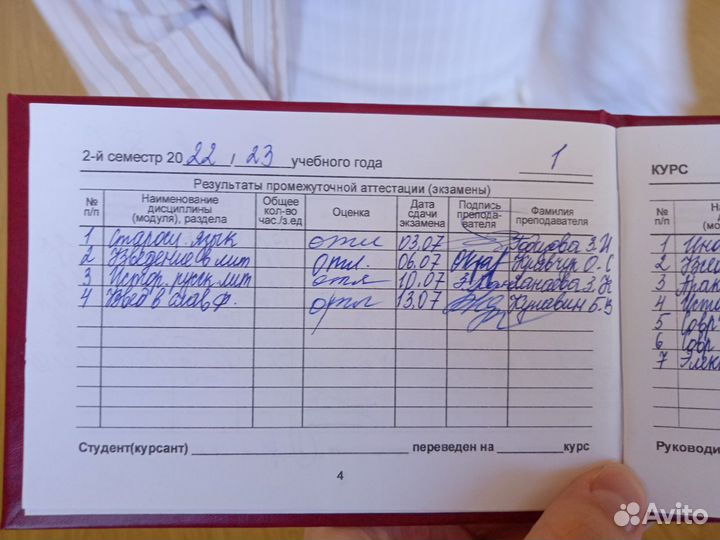 2-й семестр 20 22 / 23 учебного года 1
Результаты промежуточной аттестации (экзамены)
№ п/п Наименование дисциплины (модуля), раздела Общее кол-во час./з.ед Оценка Дата сдачи экзамена Подпись препода- вателя Фамилия преподавателя
1 Старосл. язык отл 03.07 З.И
2 Введение в лит отл. 06.07 Кравчук О.С
3 Истор. русск. лит отл 10.07
4 Введ в слав ф. отл 13.07 Кунавин Б.В
Студент(курсант) переведен на курс
4
КУРС
№ п/п
1
2
3
4
5
6
7
Руководи
Avito